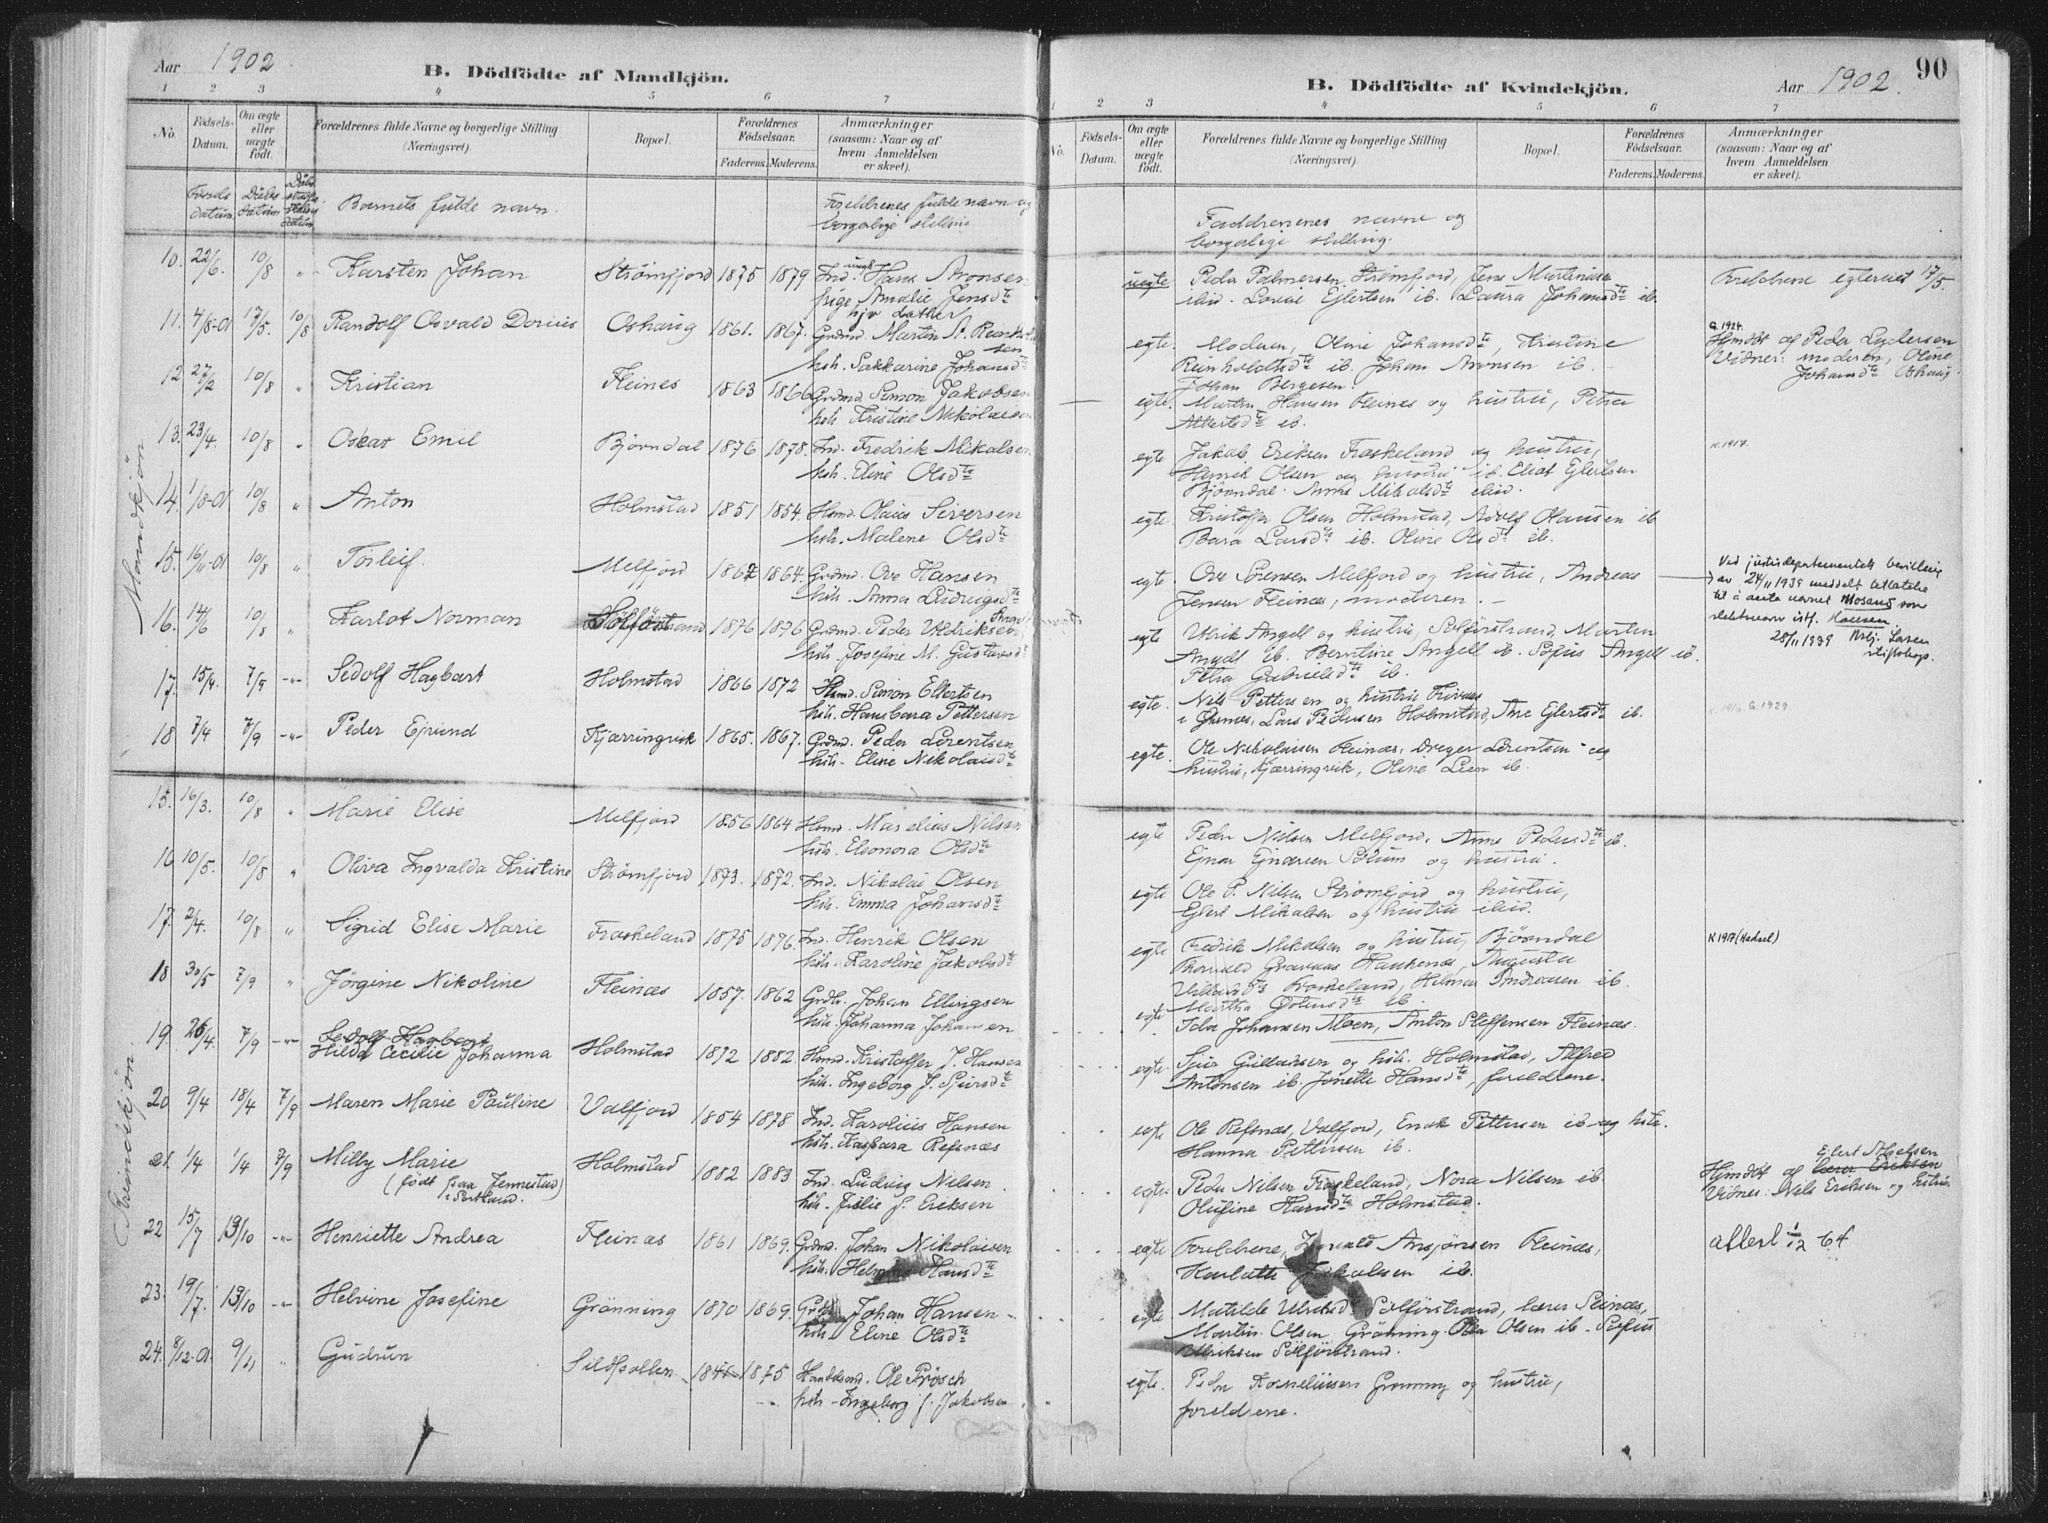 Aar 1902.
B. Dödfödte af Mandkjön.
1 2 3 4 5 6 7
No. Födsels-Datum. Om ægte eller uægte födt. Forældrenes fulde Navne og borgerlige Stilling (Næringsvei). Bopæl. Forældrenes Födselsaar. Faderens. Moderens. Anmærkninger (saasom: Naar og af hvem Anmeldelsen er skeet).
Födsels datum. Daabs datum Barnets fulde navn. Foreldrenes fulde navn og borgerlige stilling
Mandkjön
10. 22/6. 10/8 " Karsten Johan Strømfjord 1875 1879 Ind. ungk. Hans Aronsen
pige Amalie Jensdtr
11. 4/8-01 17/5. 10/8 Randolf Osvald Dorius Oshaug 1861. 1867. Grdmd. Martin A. Reinholdtsen
hstr. Sakkarine Johansdtr
12 27/2 10/8 " Kristian Fleines 1863 1866 Grdmd. Simon Jakobsen
hstr. Kristine Nikolaisen
13. 23/4. 10/8 " Oskar Emil Bjørndal 1876 1878. Ind. Fredrik Mikalsen
hstr. Eline Olsdte
14. 1/8-01 10/8 " Anton Holmstad 1851 1854. Hsmd. Olaius Seversen
hstr. Malene Olsdte
15. 16/11-01 10/8 " Torleif Melfjord 1867 1864. Grdmd. Ove Hansen
hstr. Anna Ludvigsdte
16. 14/6 10/8 " Karlot Norman Solförstrand 1876 1876 Grdmd. Peder Uldriksen
hstr. Josefine M. Gustavsd
17. 15/4. 7/9 -"- Sedolf Hagbart Holmstad 1866 1872 Hsmd. Simon Ellertsen
hstr. Hansbara Pettersen
18 7/4 7/9 -"- Peder Ejvind Kjærringvik 1865. 1867. Grdmd. Peder Lorentsen
hstr. Eline Nikolaisdte
Kvindekjön.
15. 16/3. 10/8 " Marie Elise Melfjord 1856 1864 Hsmd. Marelius Nilsen
hstr. Eleonora Olsdte
16 10/5. 10/8 " Oliva Ingvalda Kristine Strømfjord 1873. 1872. Ind. Nikolai Olsen
hstr. Emma Johansdte
17. 2/4. 10/8 " Sigrid Elise Marie Fraskeland 1875 1876. Ind. Henrik Olsen
hstr. Karoline Jakobsdte
18 30/5 7/9 " Jörgine Nikoline Fleinæs 1857. 1862 Grdbr. Johan Ellingsen
hstr. Johanna Johansen
19. 26/4. 7/9 -"- Sedolf Hagbart
Hilda Cecilie Johanna Holmstad 1872 1882 Hsmd. Kristoffer J. Hansen
hstr. Ingeborg J. Sjursdte
20 9/4 18/4 7/9 Maren Marie Pauline Valfjord 1854 1878 Ind. Karolius Hansen
hstr. Kaspara Refsnæs
21 1/4 1/4 7/9 Milly Marie
(födt paa Jennestad i Sortland. Holmstad 1882 1883 Ind. Ludvig Nilsen
hstr. Julie J. Eriksen
22 15/7 13/10 -"- Henriette Andrea Fleinæs 1861 1869. Grdmd. Johan Nikolaisen
hstr. Helmine Hansdte
23. 19/7. 13/10 -"- Helvine Josefine Grönning 1870 1869. Johan Hansen
hstr. Eline Olsdte
24. 8/12-01. 9/11 " Gudrun Sildpollen 1841 1875 Handelsmd. Ole Prösch
hstr. Ingeborg f. Jakobsen
90
B. Dödfödte af Kvindekjön.
Aar 1902.
1 2 3 4 5 6 7
No. Födsels-Datum. Om ægte eller uægte födt. Forældrenes fulde Navne og borgerlige Stilling (Næringsvei). Bopæl. Forældrenes Födselsaar. Faderens. Moderens. Anmærkninger (saasom: Naar og af hvem Anmeldelsen er skeet).
Faddrenenes navne og
borgerlige stilling.
uegte Peder Palmersen Strømfjord, Jens Martinusen
ibid. Lovise Ejlertsen ib. Laura Johansdte ib. Foreldrene egteviet 17/5.
egte. Moderen, Oline Johansdte, Kristine
Reinholdtsdte ib. Johan Aronsen ib.
Johan Bergesen.
G. 1924.
Hjmdöt af Peder Lydersen
Vidner: moderen, Oline
Johansdte Oshaug
egte. Martin Hansen Fleines og hustru, Petra
Albertsdte ib.
egte Jakob Eriksen Fraskeland og hustru,
Henrik Olsen og hustru ib. Eliot Ejlertsen
Bjørndal. Anna Mikalsdte ibid.
K. 1917.
egte Kristoffer Olsen Holmstad, Adolf Olausen ib
Bara Larsdte ib. Oline Olsdte ib.
egte. Ove Sørensen Melfjord og hustru, Andreas
Jensen Fleines, moderen.
Ved justisdepartementets bevilling
av 24/11 1939 meddelt tillatelse
til å anta navnet Mosaug som
slektsnavn istf. Hansen
28/11 1939
stiftskap.
egte Ulrik Angell og hustru, Solförstrand, Martin
Angell ib. Berntine Angell ib. Sofus Angell ib.
Petra Gabrielsdte ib.
egte. Nils Pettersen og hustru
Lars Pedersen Holmstad, Ane Ejlertsdte ib.
K. 1916. G. 1929
egte. Ole Nikolaisen Fleinæs, Dreyer Lorentsen og
hustru, Kjærringvik, Oline Lien ib.
egte Peder Nilsen Melfjord, Anne Pedersdte ib.
Ejnar Ejnarsen Solum og hustru.
egte Ole P. Nilsen Strømfjord og hustru,
Ejlert Mikalsen og hustru ibid.
egte Fredrik Mikalsen og hustru, Bjørndal
Thorvald Gravaas Haukenæs, Augusta
Fraskeland, Helmer Andreasen ib.
Martha ib.
K 1917 (Hadsel)
egte Ida Johansen Moen, Anton Steffensen Fleinæs.
egte. Sjur Gulliksen og hstr. Holmstad, Alfred
Antonsen ib. Jonette Hansdte, foreldrene.
egte. Ole Refsnæs, Valfjord, Enok Pettersen ib og hstr.
Hanna Pettersen ib.
egte. Peder Nilsen Fraskeland, Nora Nilsen ib.
Olufine Hansdte Holmstad.
Hjmdöt af Ejlert
lærer Eriksen
Vidner: Nils Eriksen og hustru
egte Foreldrene, Ansjönsen Fleinæs,
Karlotte Jakobsen ib. attest 1/12 64
egte. Matilde Ulriksd Solförstrand, lærer Steinæs,
Martin Olsen Grönning. Olsen ib. Sofus
Ulriksen Sölförstrand.
egte. Peder Korneliusen Grönning og hustru,
foreldrene.